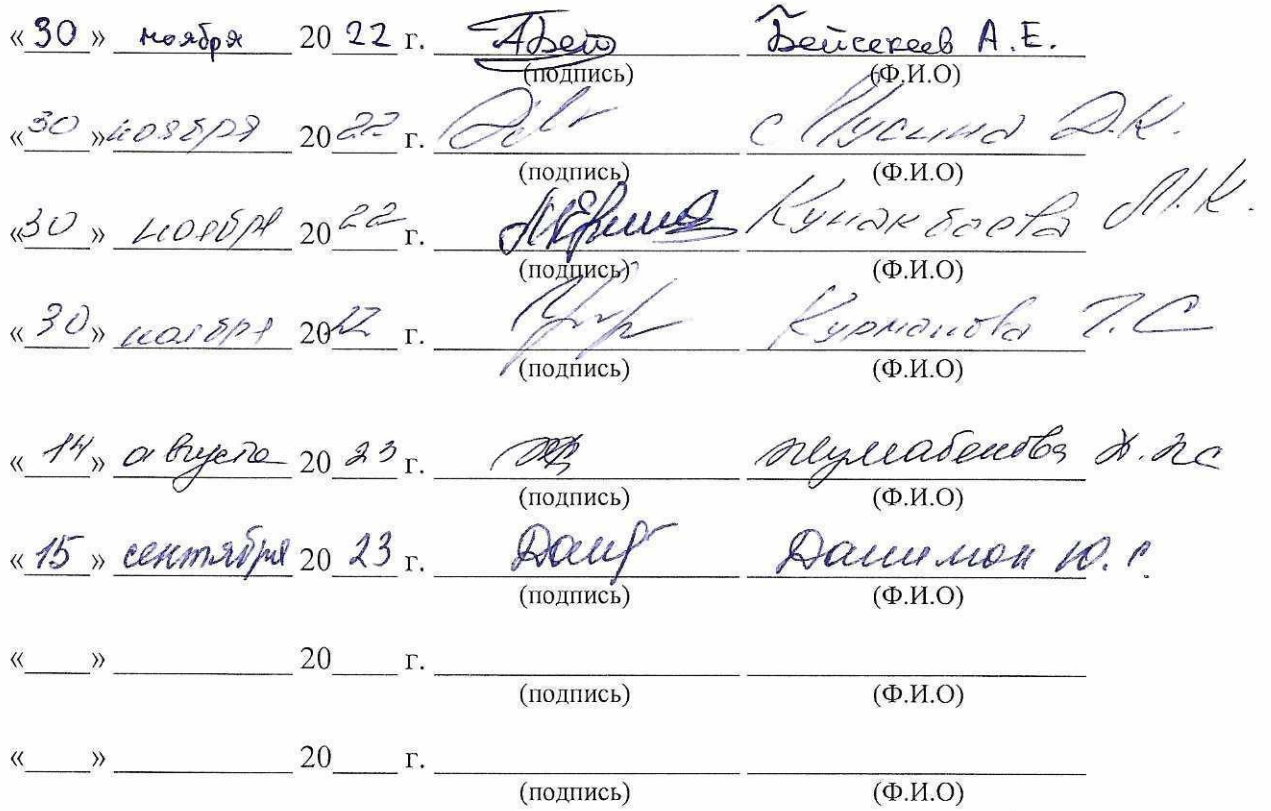 «30» ноября 2022 г. АБей Бейсекеев А.Е.
(подпись) (Ф.И.О)
«30» ноября 2022 г. Мусина Д.К.
(подпись) (Ф.И.О)
«30» ноября 2022 г. Кунакбаева М.К.
(подпись) (Ф.И.О)
«30» ноября 2022 г. Курманова Г.С
(подпись) (Ф.И.О)
«14» августа 2023 г. Жумабекова
(подпись) (Ф.И.О)
«15» сентября 2023 г. Ю.С.
(подпись) (Ф.И.О)
«___» ________ 20___ г.
(подпись) (Ф.И.О)
«___» ________ 20___ г.
(подпись) (Ф.И.О)